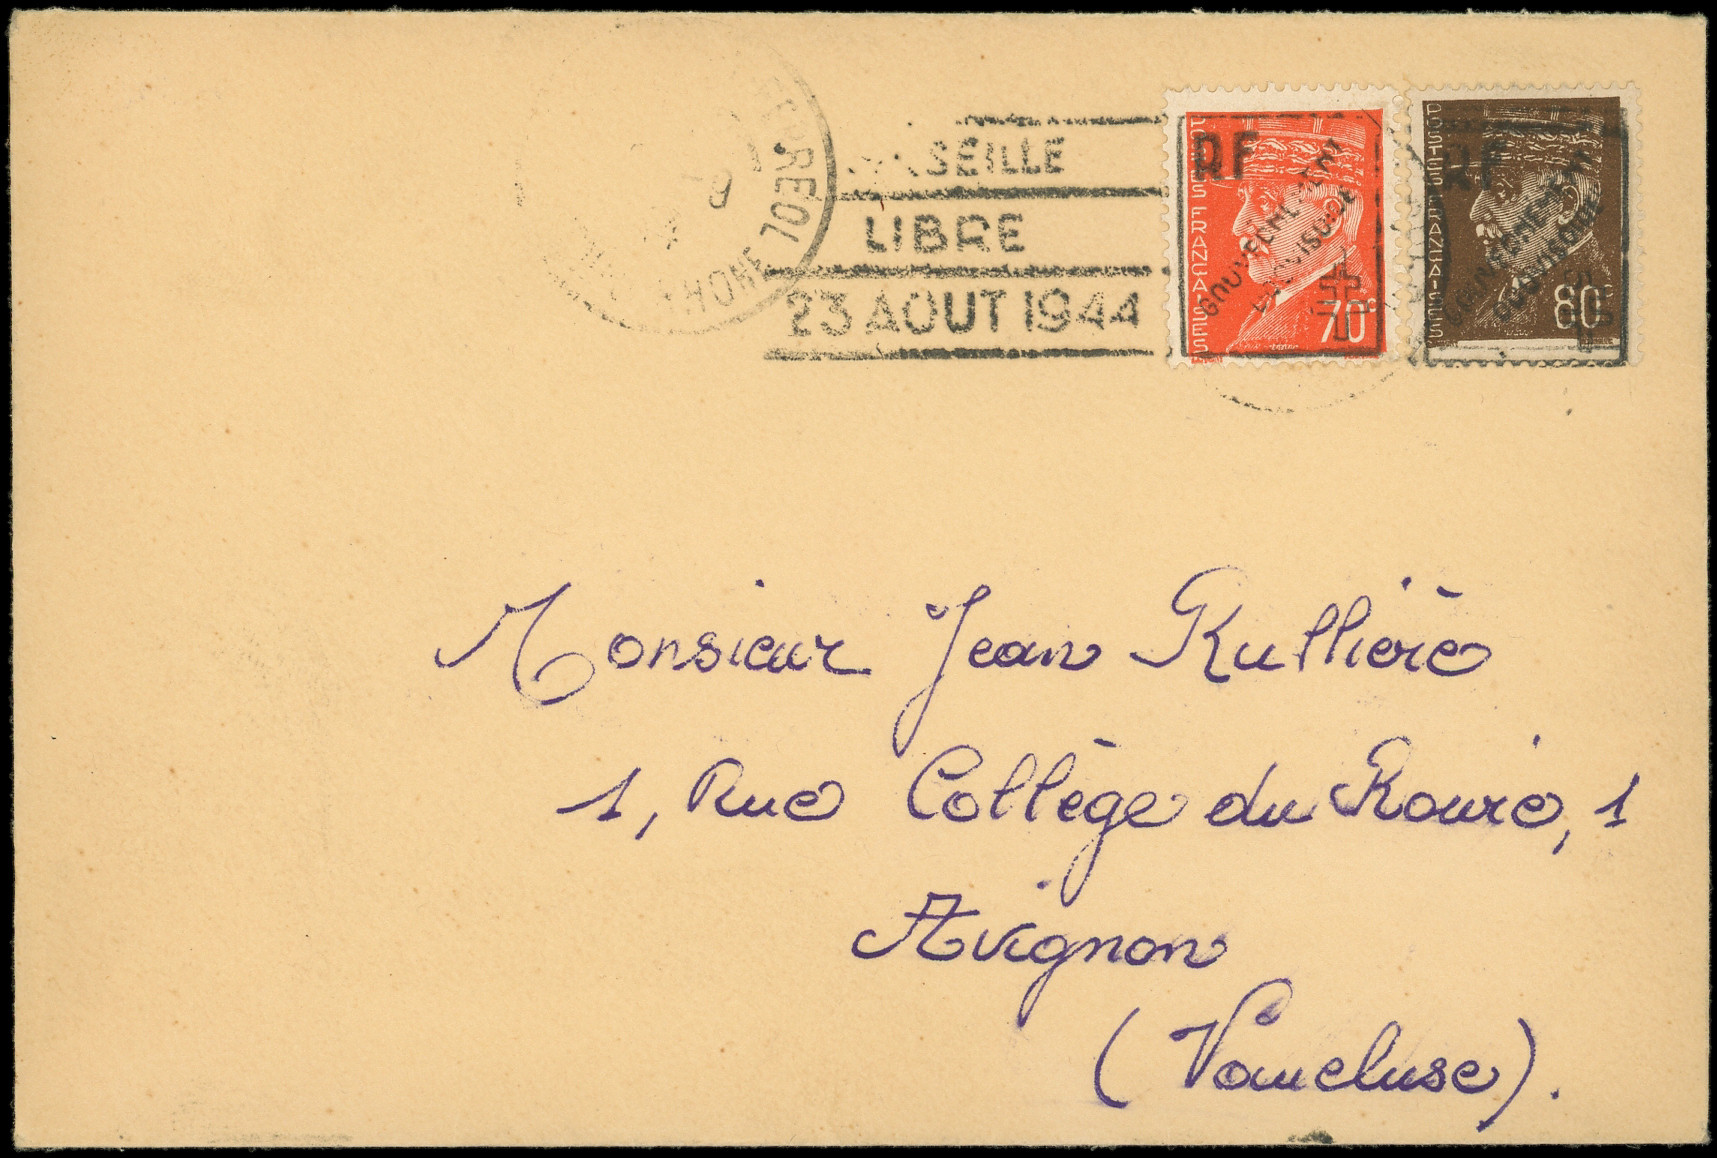 MARSEILLE
LIBRE
23 AOUT 1944
FERREOL
RHONE
RF
POSTES FRANCAISES
GOUVERNEMENT
PROVISOIRE
70c
RF
POSTES FRANCAISES
GOUVERNEMENT
PROVISOIRE
80c
Monsieur Jean Rullière
1, Rue Collège du Roure, 1
Avignon
(Vaucluse).